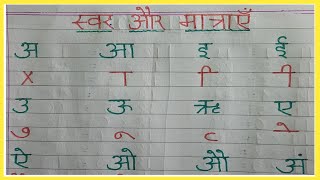 स्वर और मात्राएँ
अ आ इ ई
x ा ि ी
उ ऊ ऋ ए
ु ू ृ े
ऐ ओ औ अं